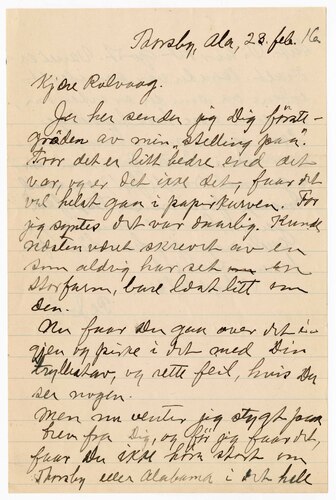 Thorsby, Ala, 23. feb. 16.
Kjære Rølvaag.
Ja her sender jeg Dig første-
grøden av min „stelling paa".
Tror det er litt bedre end det
var, og er det ikke det, faar det
vel helst gaa i papirkurven. For
jeg syntes det var daarlig. Kunde
næsten været skrevet av en
som aldrig har set en
storfarm, bare læst litt om
den.
Nu faar Du gaa over det i-
gjen og pirke i det med Din
tryllestav, og rette feil, hvis Du
ser nogen.
Men nu venter jeg stygt paa
brev fra Dig, og før jeg faar det,
faar Du ikke høre stort om
Thorsby eller Alabama i det hele